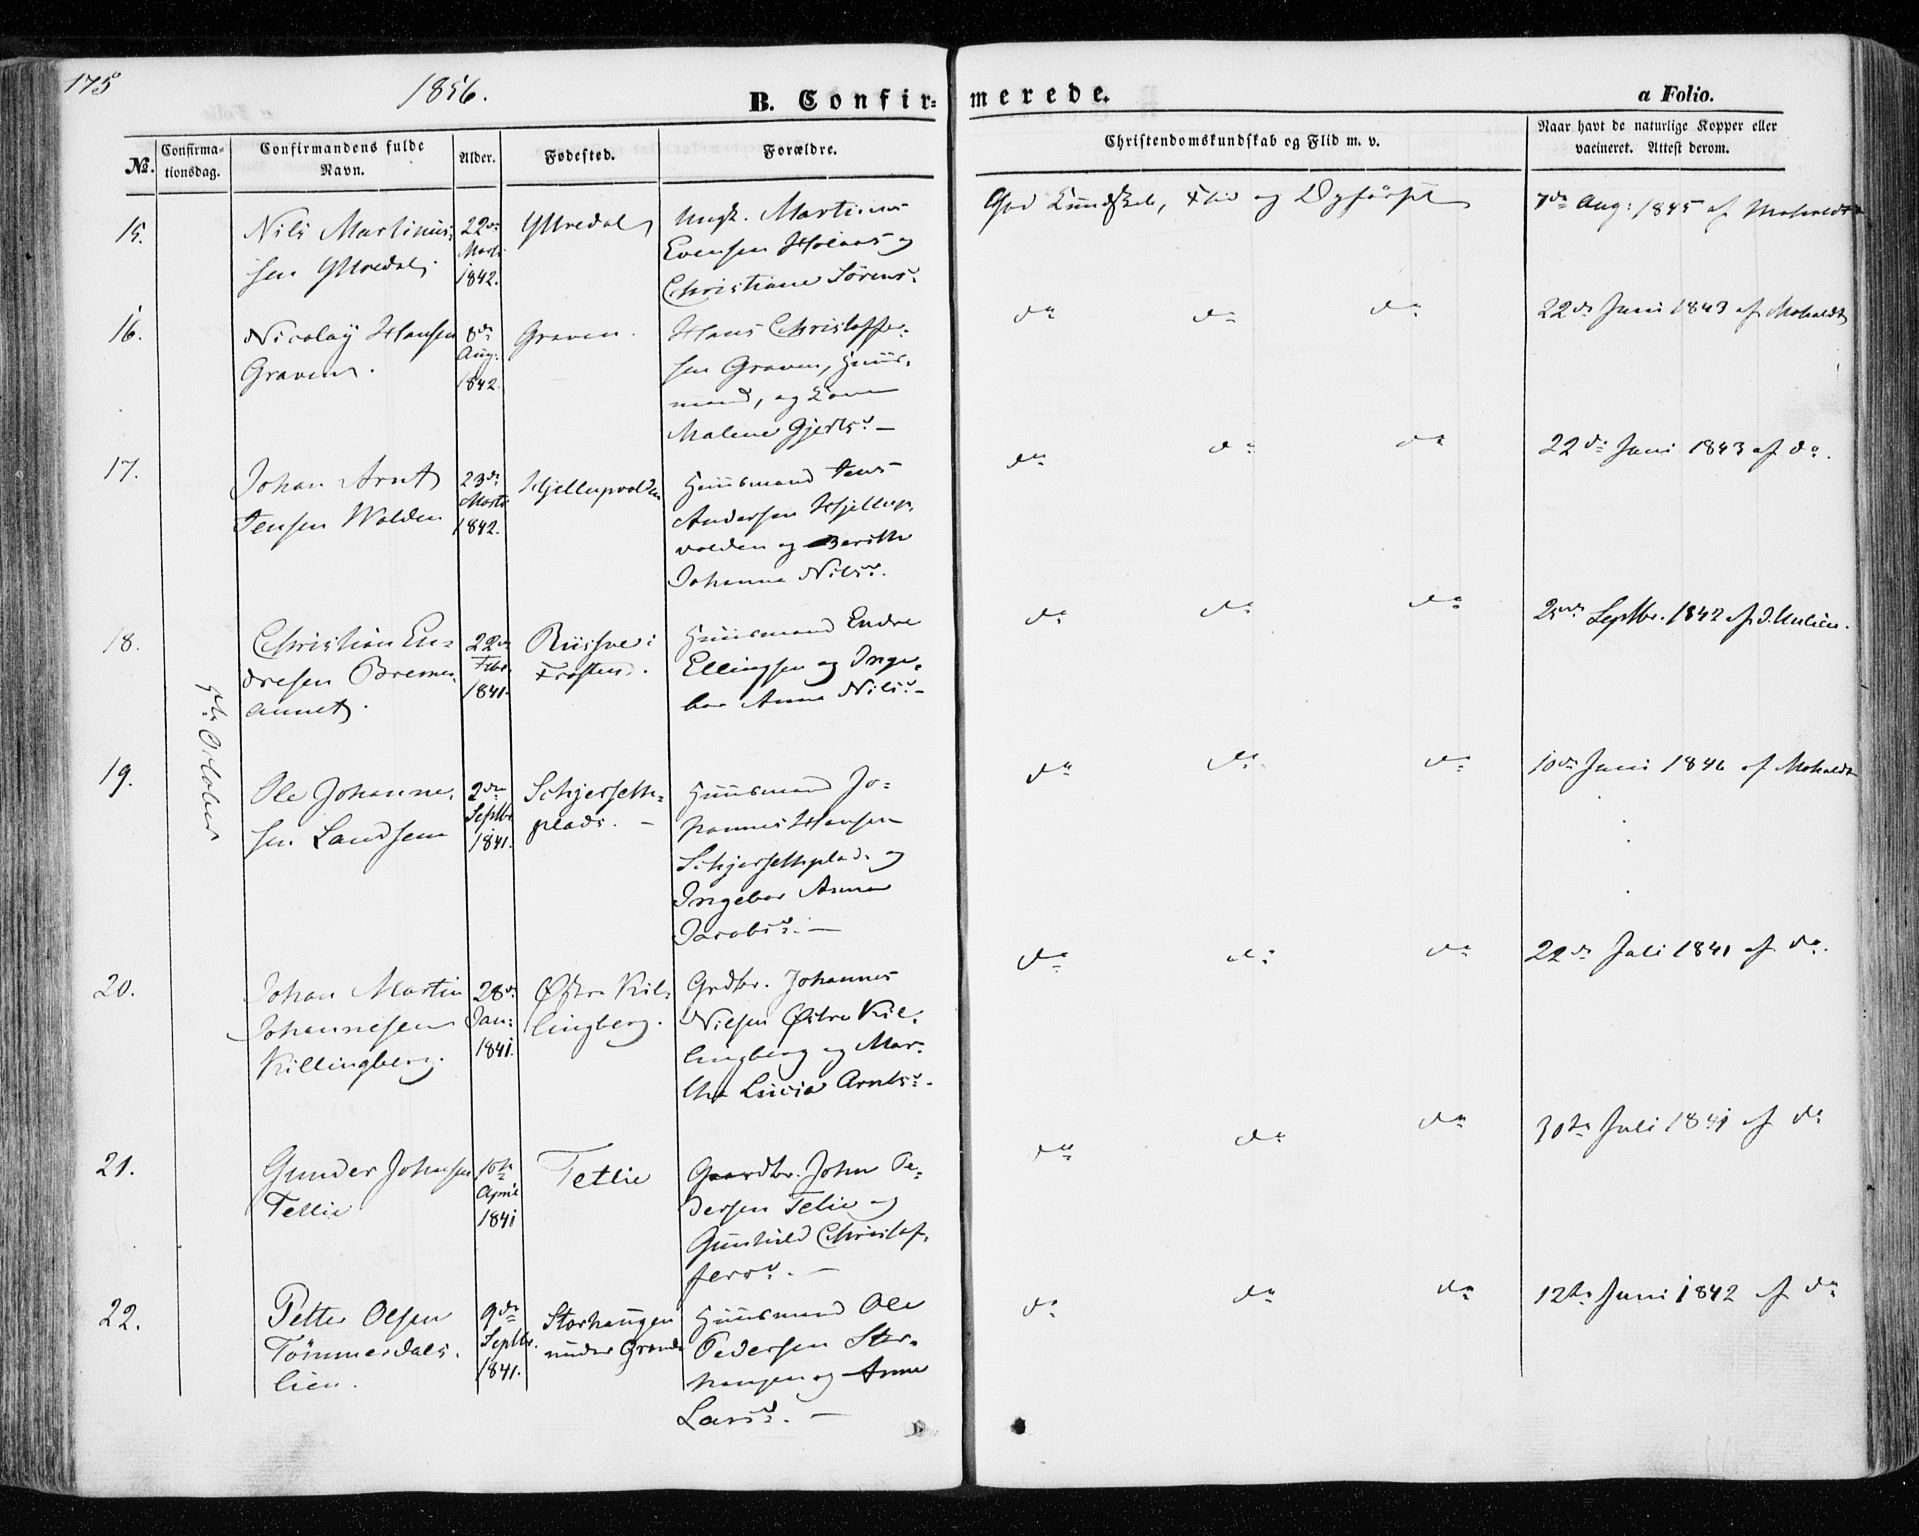 175
1856.
B. Confirmerede.
a Folio.
No.
Confirmationsdag.
Confirmandens fulde Navn.
Alder.
Fødested.
Forældre.
Christendomskundskab og Flid m. v.
Naar havt de naturlige Kopper eller vacineret. Attest derom.
5te October
15.
Nils Martinus-
sen Yttredal
22de
Marts
1842.
Yttredal
Ungk. Martinus
Evensen Holaas og
Christiane Sørensd.
God Kundskab, Flid og Opførsel
7de Aug: 1845 af Moholdt
16.
Nicolay Hansen
Graven.
8de
Aug.
1842.
Graven.
Hans Christoffer-
sen Graven, Huus-
mand, og Kone
Malene Gjertsd. —
do do do
22de Juni 1843 af Moholdt
17.
Johan Arnt
Jensen Wolden
23de
Marts
1842.
Hjellupvolden
Huusmand Jens
Andersen Hjellup-
volden og Berith
Johanna Nilsd.
do do do
22de Juni 1843 af do.
18.
Christian En-
dresen Bremer-
aunet.
22de
Febr.
1841.
Frosten.
Huusmand Endre
Ellingsen og Inge-
bor Anna Nilsd. —
do do do
Septbr. 1842 af
19.
Ole Johanne-
sen Landsem
2den
Septbr.
1841.
Schjerseth-
plads. —
Huusmand Jo-
hannes Hansen
Schjersethplads og
Ingebor Anna
Jacobsd. —
do do do
10de Juni 1846 af Moholdt
20.
Johan Martin
Johannesen
Killingberg.
28de
Jan:
1841.
Østre Kil-
lingberg.
Grdbr. Johannes
Nilsen Østre Kil-
lingberg og Mar-
tha Lucia Arntsd. —
do do do
22de Juli 1841 af do.
21.
Gunder Johnsen
Tetlie
10de
April
1841
Tetlie
Gaardbr. John Pe-
dersen Tetlie og
Gunhild Christof-
fersd. —
do do do
30te Juli 1841 af do
22.
Petter Olsen
Tömmerdals-
lien.
9de
Septbr.
1841.
Storhaugen
under Grande
Huusmand Ole
Pedersen Stor-
haugen og Anne
Larsd. —
do do do
12te Juni 1842 af do